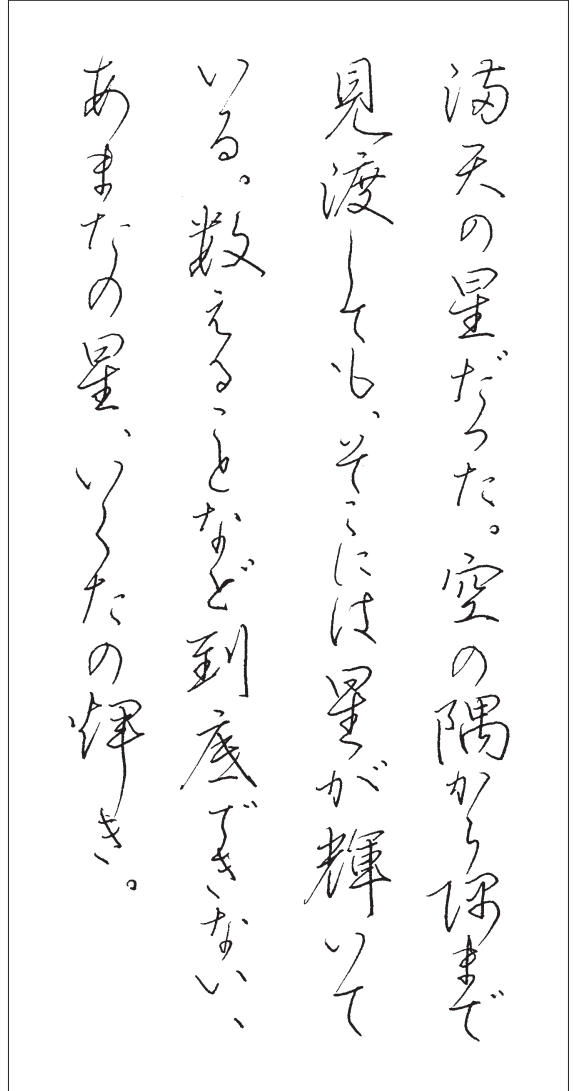 満天の星だった。空の隅から隅まで
見渡しても、そこには星が輝いて
いる。数えることなど到底できない、
あまたの星、いくたの輝き。